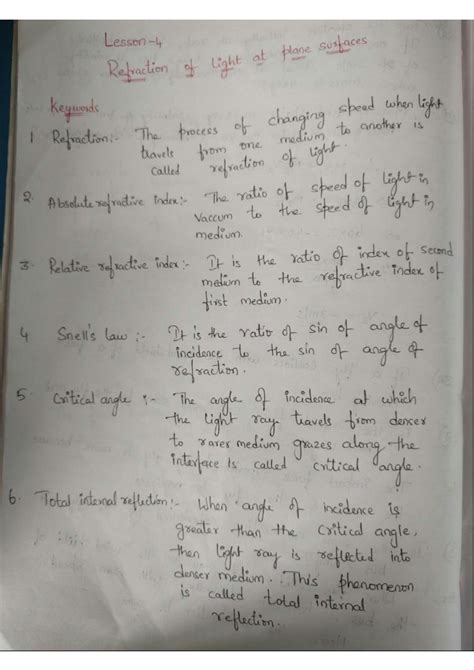 Lesson-4
Refraction of light at plane surfaces
Keywords
1 Refraction:- The process of changing speed when light
travels from one medium to another is
called refraction of light.
2. Absolute refractive index:- The ratio of speed of light in
vaccum to the speed of light in
medium.
3. Relative refractive index:- It is the ratio of index of second
medium to the refractive index of
first medium.
4 Snell's law :- It is the ratio of sin of angle of
incidence to the sin of angle of
refraction.
5. Critical angle :- The angle of incidence at which
the light ray travels from dencer
to rarer medium grazes along the
interface is called critical angle.
6. Total internal reflection:- When angle of incidence is
greater than the critical angle,
then light ray is reflected into
denser medium. This phenomenon
is called total internal
reflection.